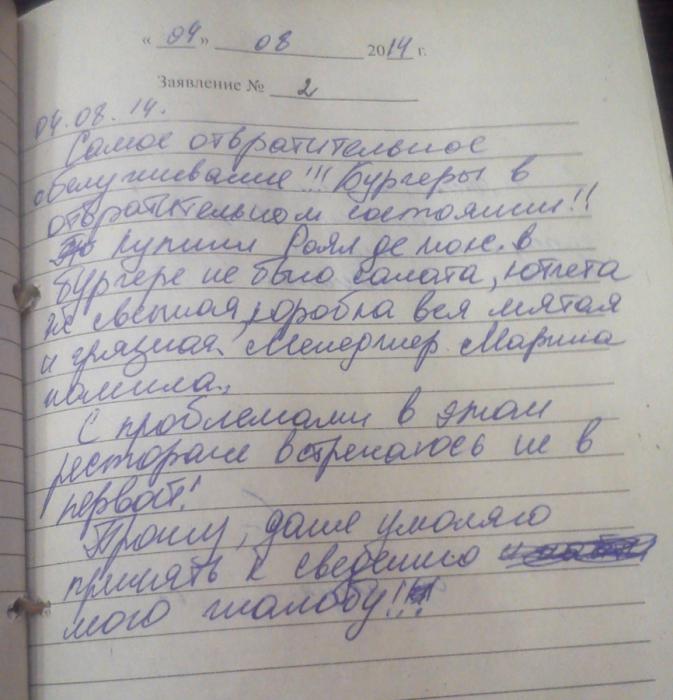 « 04 » 08 2014 г.
Заявление № 2
04.08.14.
Самое отвратительное
обслуживание!!! Бургеры в
отвратительном состоянии!!
Купили Роял де люкс. в
бургере не было салата, котлета
не свежая, коробка вся мятая
и грязная. Менеджер Марина
хамила.,
С проблемами в этом
ресторане встречаюсь не в
первой!
Прошу, даже умоляю
принять к сведению
мою жалобу!!!